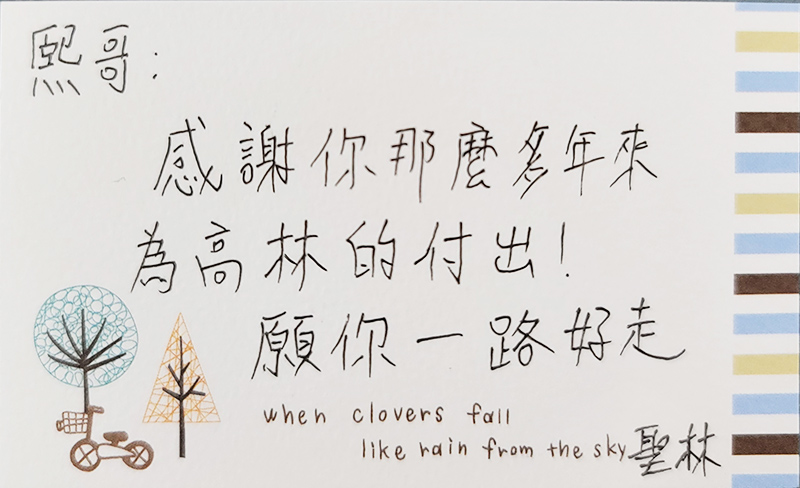 熙哥:
感謝你那麼多年來
為高林的付出!
願你一路好走
when clovers fall
like rain from the sky
聖林